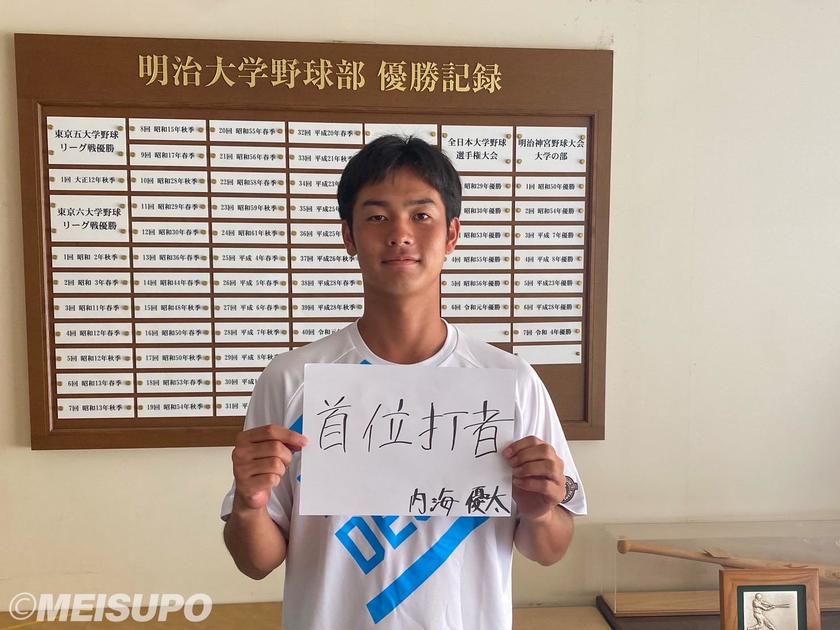 明治大学野球部 優勝記録
東京五大学野球
リーグ戦優勝
1回 大正12年秋季
東京六大学野球
リーグ戦優勝
1回 昭和 2年秋季
2回 昭和 3年春季
3回 昭和11年春季
4回 昭和12年春季
5回 昭和12年秋季
6回 昭和13年春季
7回 昭和13年秋季
8回 昭和15年秋季
9回 昭和17年春季
10回 昭和28年秋季
11回 昭和29年春季
12回 昭和30年春季
13回 昭和36年春季
14回 昭和44年春季
15回 昭和48年春季
16回 昭和50年春季
17回 昭和50年秋季
18回 昭和53年春季
19回 昭和54年秋季
20回 昭和55年春季
21回 昭和56年春季
22回 昭和58年春季
23回 昭和59年秋季
24回 昭和61年秋季
25回 平成 4年春季
26回 平成 5年春季
27回 平成 6年春季
28回 平成 7年秋季
29回 平成 8年秋季
30回 平成
31回
32回 平成20年春季
33回 平成21年秋
34回 平成23
35回 平成25
36回 平成25
37回 平成26年秋
38回 平成28年春季
39回 平成28年秋季
40回 令和元
全日本大学野球
選手権大会
昭和29年優勝
昭和30年優勝
昭和53年優勝
4回 昭和55年優勝
5回 昭和56年優勝
6回 令和元年優勝
明治神宮野球大会
大学の部
1回 昭和50年優勝
2回 昭和54年優勝
3回 平成 7年優勝
4回 平成 8年優勝
5回 平成23年優勝
6回 平成28年優勝
7回 令和 4年優勝
首位打者
内海 優太
DE
©MEISUPO